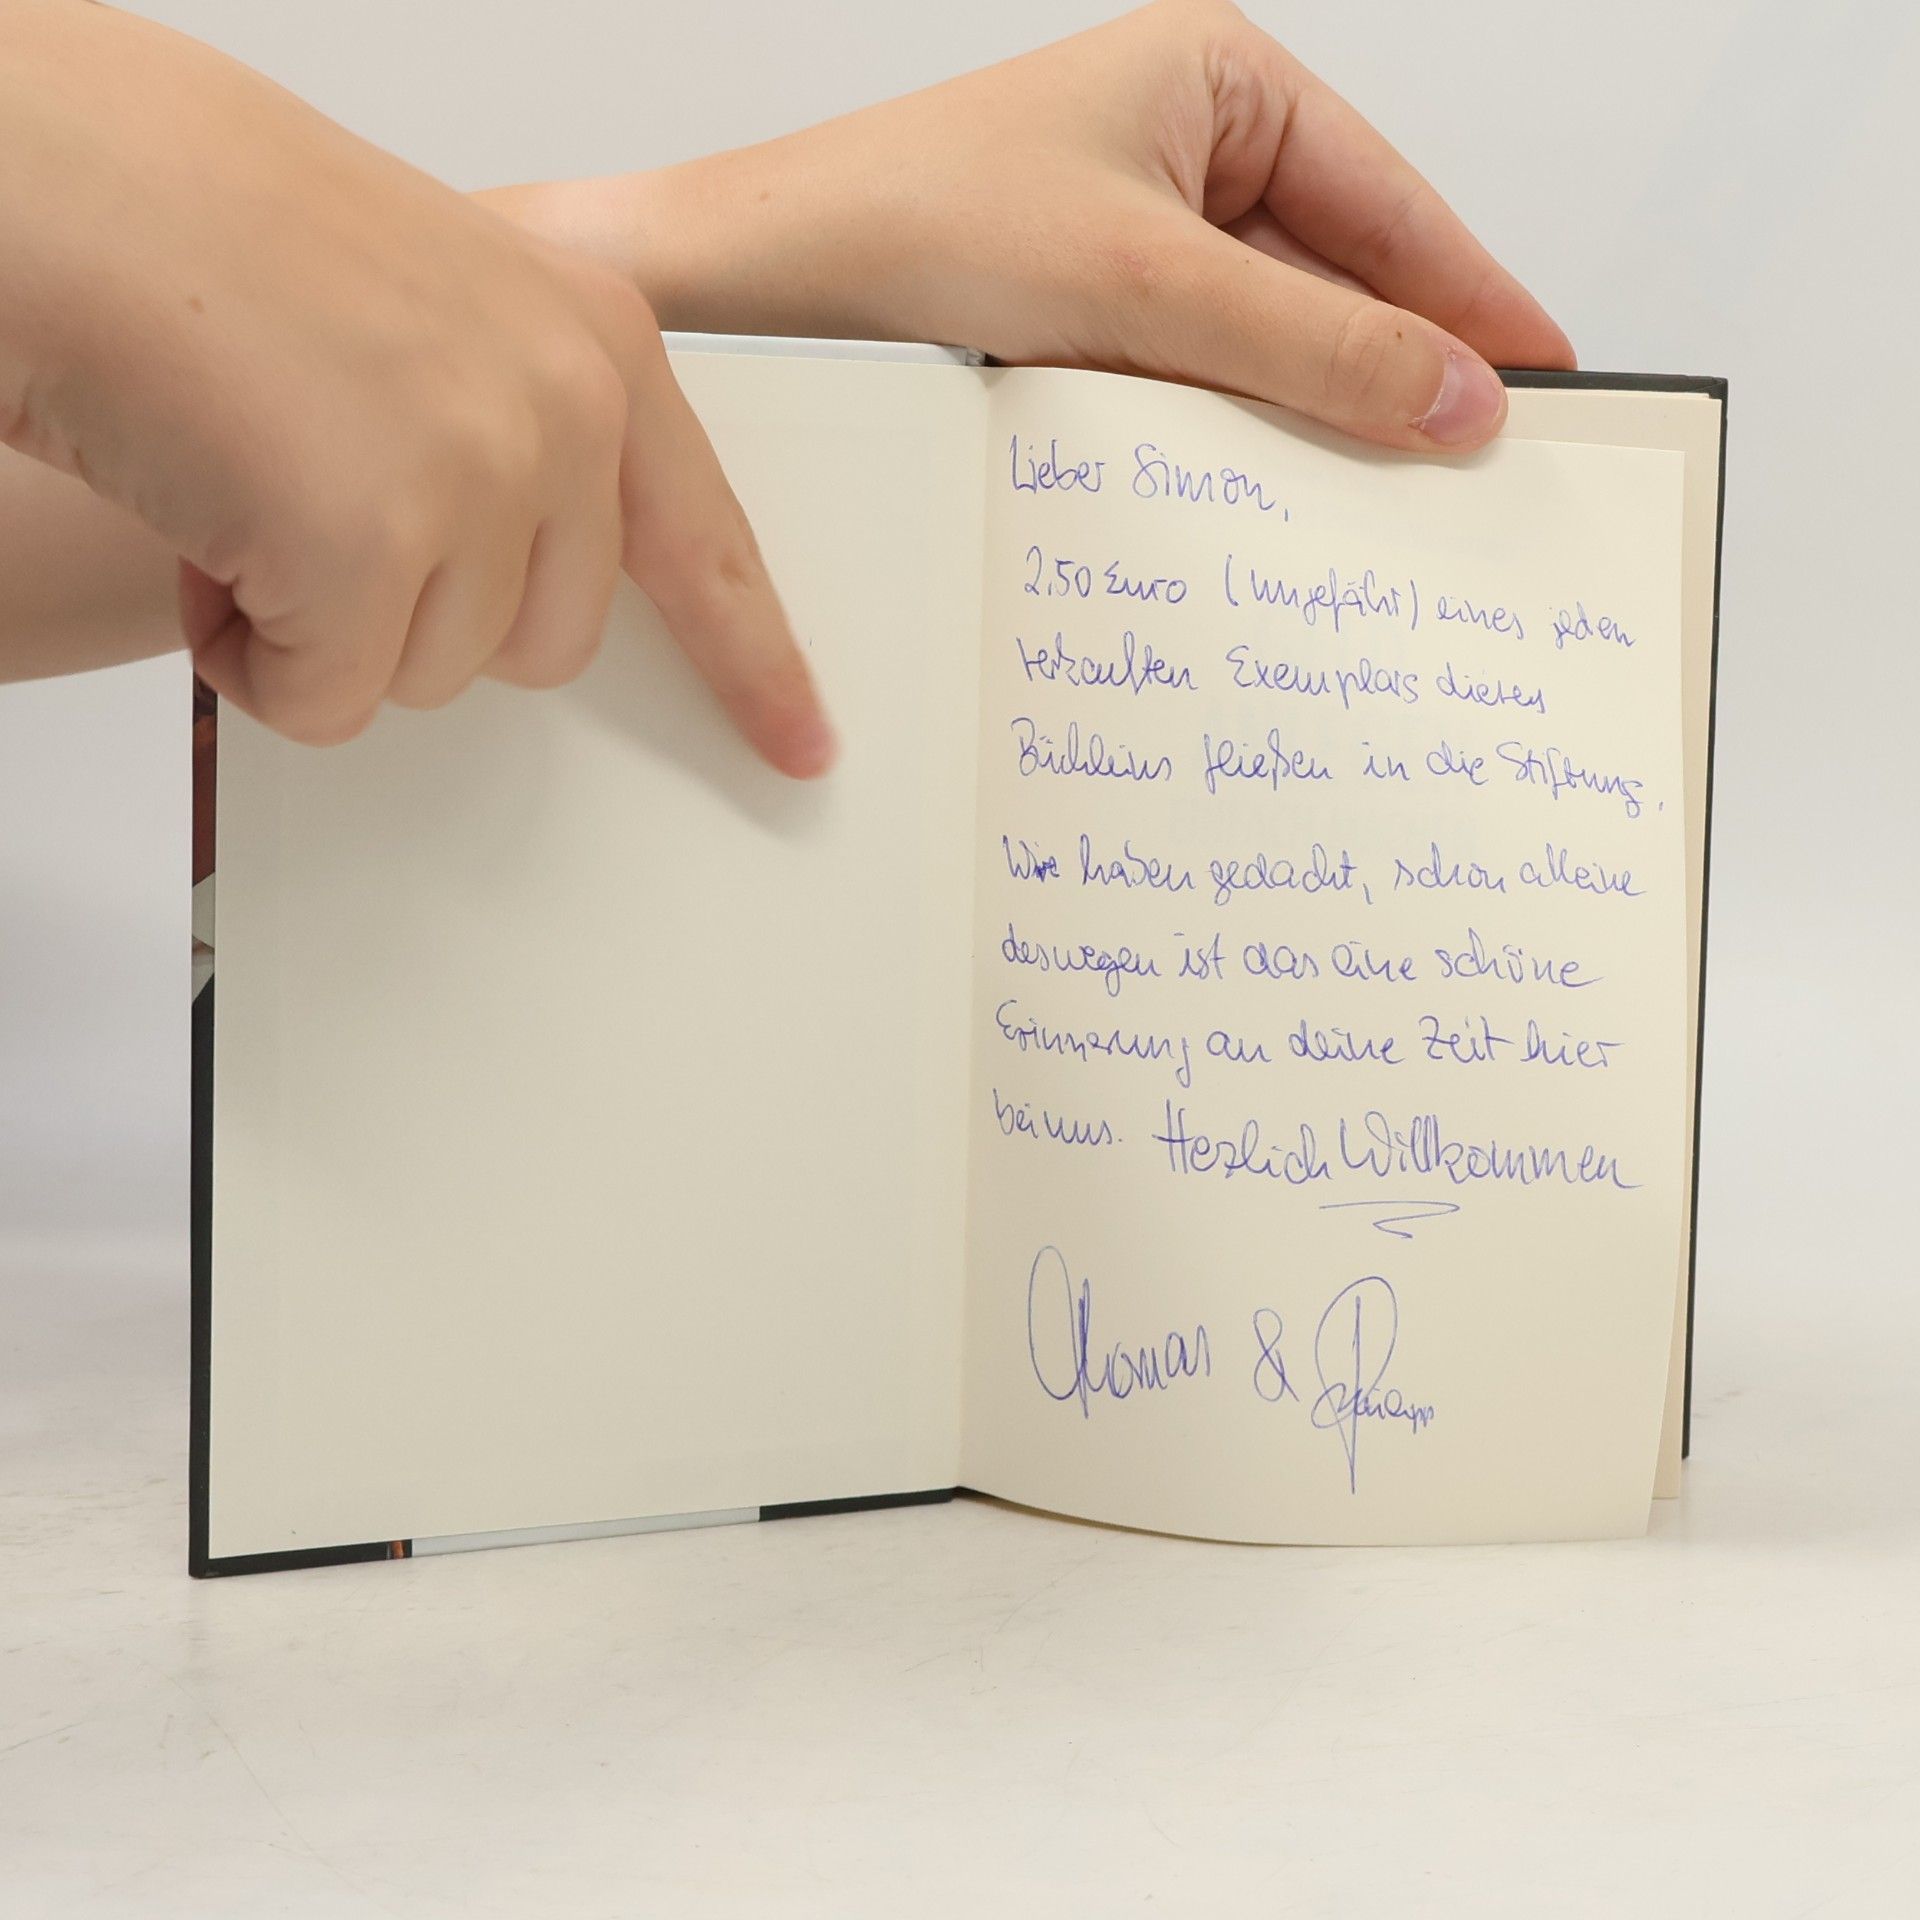 Lieber Simon,
2,50 Euro (ungefähr) eines jeden
verkauften Exemplars dieses
Büchleins fließen in die Stiftung.
Wir haben gedacht, schon alleine
deswegen ist das eine schöne
Erinnerung an deine Zeit hier
bei uns. Herzlich Willkommen
Thomas & Philipp